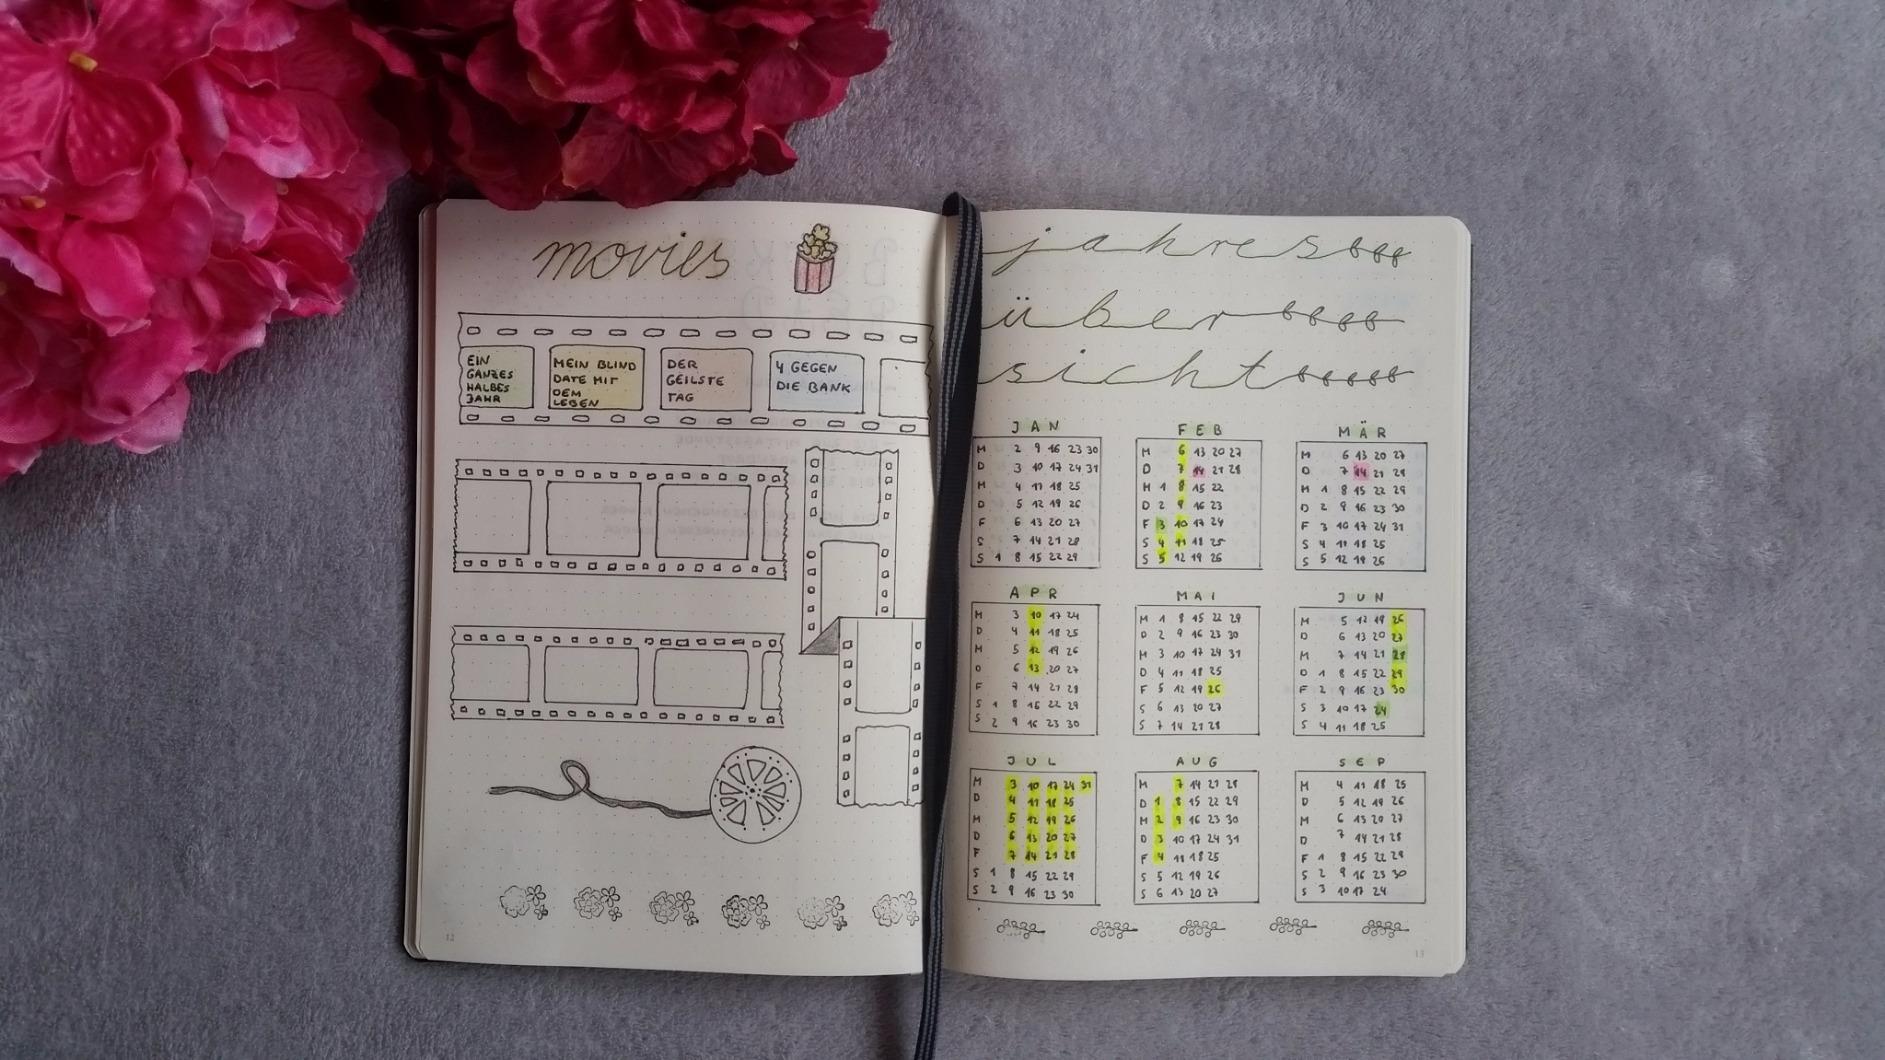 movies
EIN
GANZES
HALBES
JAHR
MEIN BLIND
DATE MIT
DEM
LEBEN
DER
GEILSTE
TAG
4 GEGEN
DIE BANK
12
jahres
über
sicht
JAN
M 2 9 16 23 30
D 3 10 17 24 31
M 4 11 18 25
D 5 12 19 26
F 6 13 20 27
S 7 14 21 28
S 1 8 15 22 29
FEB
M 6 13 20 27
D 7 14 21 28
M 1 8 15 22
D 2 9 16 23
F 3 10 17 24
S 4 11 18 25
S 5 12 19 26
MÄR
M 6 13 20 27
D 7 14 21 28
M 1 8 15 22 29
D 2 9 16 23 30
F 3 10 17 24 31
S 4 11 18 25
S 5 12 19 26
APR
M 3 10 17 24
D 4 11 18 25
M 5 12 19 26
D 6 13 20 27
F 7 14 21 28
S 1 8 15 22 29
S 2 9 16 23 30
MAI
M 1 8 15 22 29
D 2 9 16 23 30
M 3 10 17 24 31
D 4 11 18 25
F 5 12 19 26
S 6 13 20 27
S 7 14 21 28
JUN
M 5 12 19 26
D 6 13 20 27
M 7 14 21 28
D 1 8 15 22 29
F 2 9 16 23 30
S 3 10 17 24
S 4 11 18 25
JUL
M 3 10 17 24 31
D 4 11 18 25
M 5 12 19 26
D 6 13 20 27
F 7 14 21 28
S 1 8 15 22 29
S 2 9 16 23 30
AUG
M 7 14 21 28
D 1 8 15 22 29
M 2 9 16 23 30
D 3 10 17 24 31
F 4 11 18 25
S 5 12 19 26
S 6 13 20 27
SEP
M 4 11 18 25
D 5 12 19 26
M 6 13 20 27
D 7 14 21 28
F 1 8 15 22 29
S 2 9 16 23 30
S 3 10 17 24
13